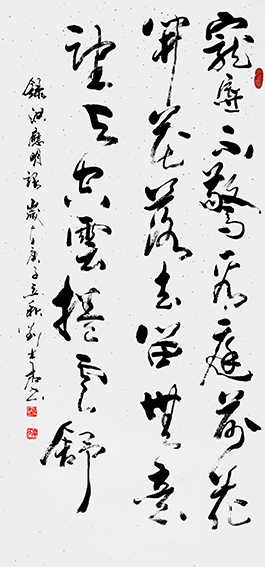 寵辱不驚看庭前花
開花落去留無意
望天空雲捲雲舒
錄洪應明語歲在庚子立秋